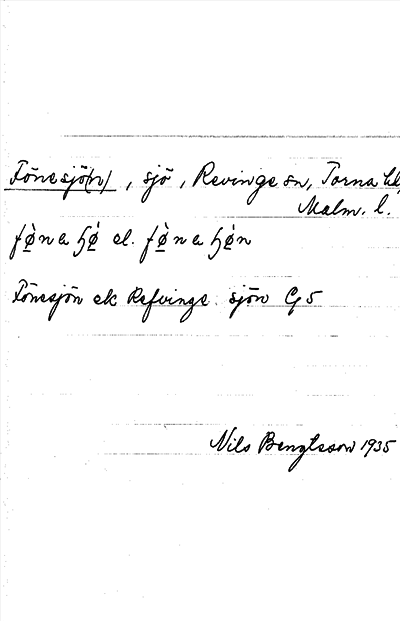 Fönesjö(n), sjö, Revinge sn, Torna hd,
Malm. l.
fø̀na ɧø̀ el. fø̀na ɧø̀n
Fönesjön ek Refvinge sjön G5
Nils Bengtsson 1935